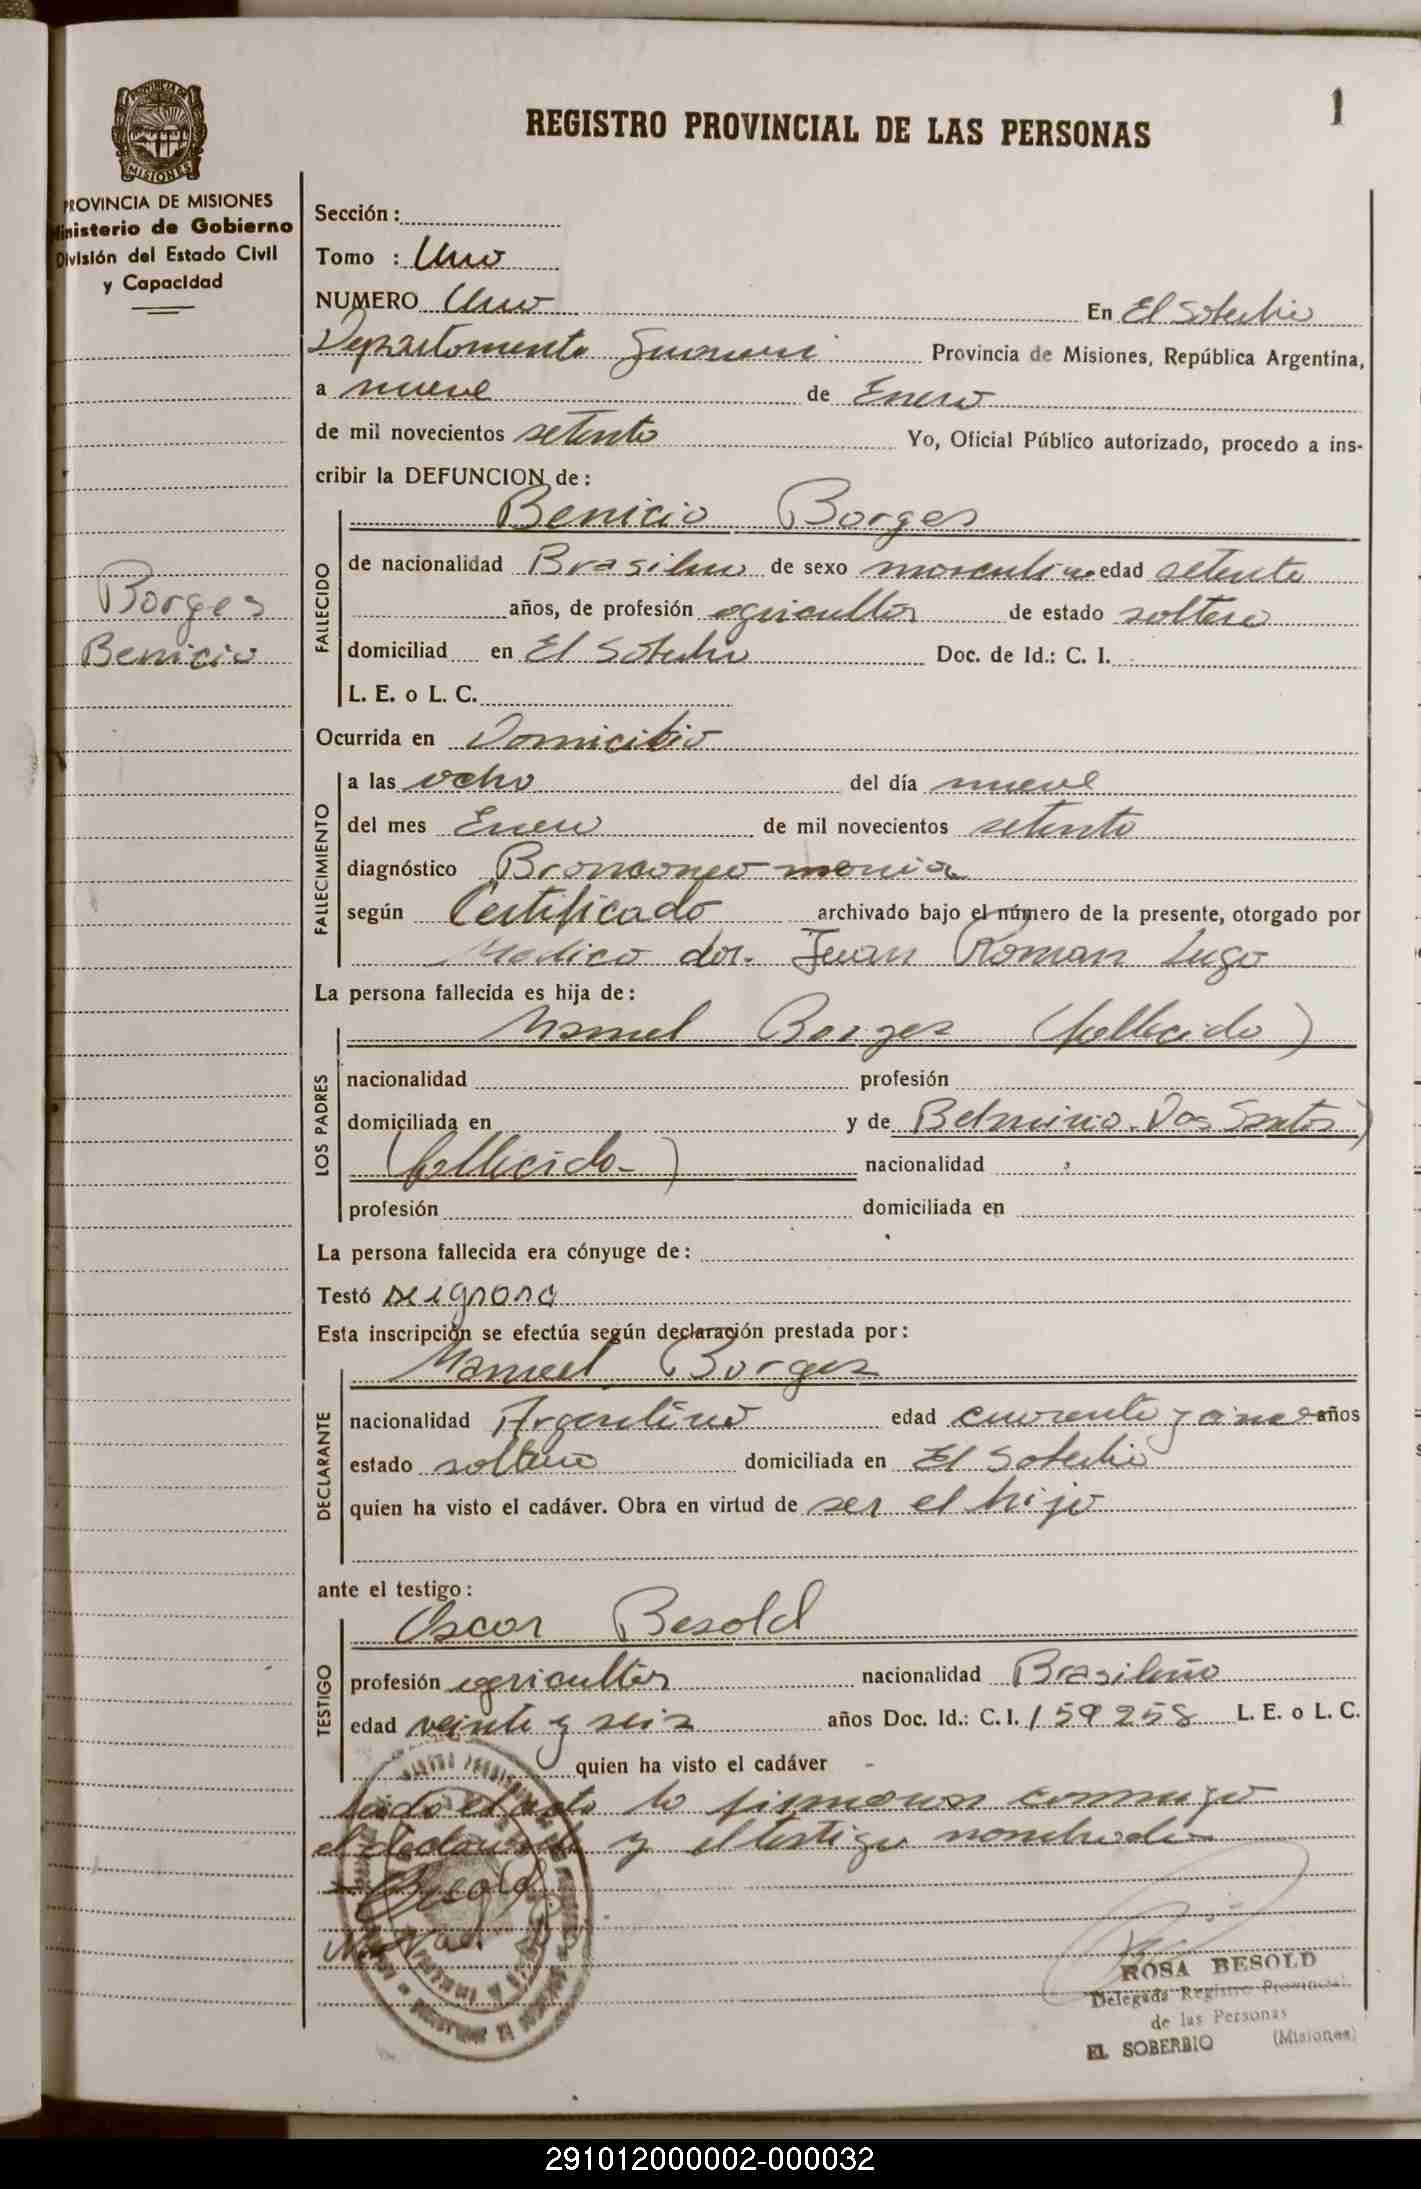 1
REGISTRO PROVINCIAL DE LAS PERSONAS
PROVINCIA DE
MISIONES
PROVINCIA DE MISIONES
Ministerio de Gobierno
División del Estado Civil
y Capacidad
Borges
Benicio
Sección:
Tomo : Uno
NUMERO Uno En El Soberbio
Departamento Guarani Provincia de Misiones, República Argentina,
a nueve de Enero
de mil novecientos setenta Yo, Oficial Público autorizado, procedo a ins-
cribir la DEFUNCION de:
FALLECIDO
Benicio Borges
de nacionalidad Brasilera de sexo masculino edad setenta
años, de profesión agricultor de estado soltero
domiciliad en El Soberbio Doc. de Id.: C. I.
L. E. o L. C.
Ocurrida en Domicilio
FALLECIMIENTO
a las ocho del día nueve
del mes Enero de mil novecientos setenta
diagnóstico Bronconeo monia
según Certificado archivado bajo el número de la presente, otorgado por
Medico dor. Juan Roman Lugo
La persona fallecida es hija de:
LOS PADRES
Manuel Borges (fallecido)
nacionalidad profesión
domiciliada en y de Dos Santos
(fallecida-) nacionalidad
profesión domiciliada en
La persona fallecida era cónyuge de:
Testó se ignora
Esta inscripción se efectúa según declaración prestada por:
DECLARANTE
Manuel Borges
nacionalidad Argentino edad cuarenta y cinco años
estado soltero domiciliada en El Soberbio
quien ha visto el cadáver. Obra en virtud de ser el hijo
ante el testigo:
TESTIGO
Oscar Besold
profesión agricultor nacionalidad Brasileño
edad veinte y seis años Doc. Id.: C. I. 159258 L. E. o L. C.
quien ha visto el cadáver
leida el acta la firmaron conmigo
el declarante y el testigo nombrado
Besold
ROSA BESOLD
Delegada Registro Provincial
de las Personas
EL SOBERBIO (Misiones)
291012000002-000032